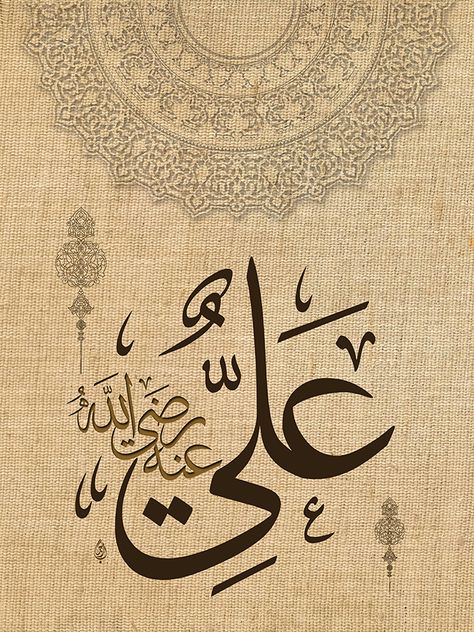 عَلِيٌّ
رضي الله عنه